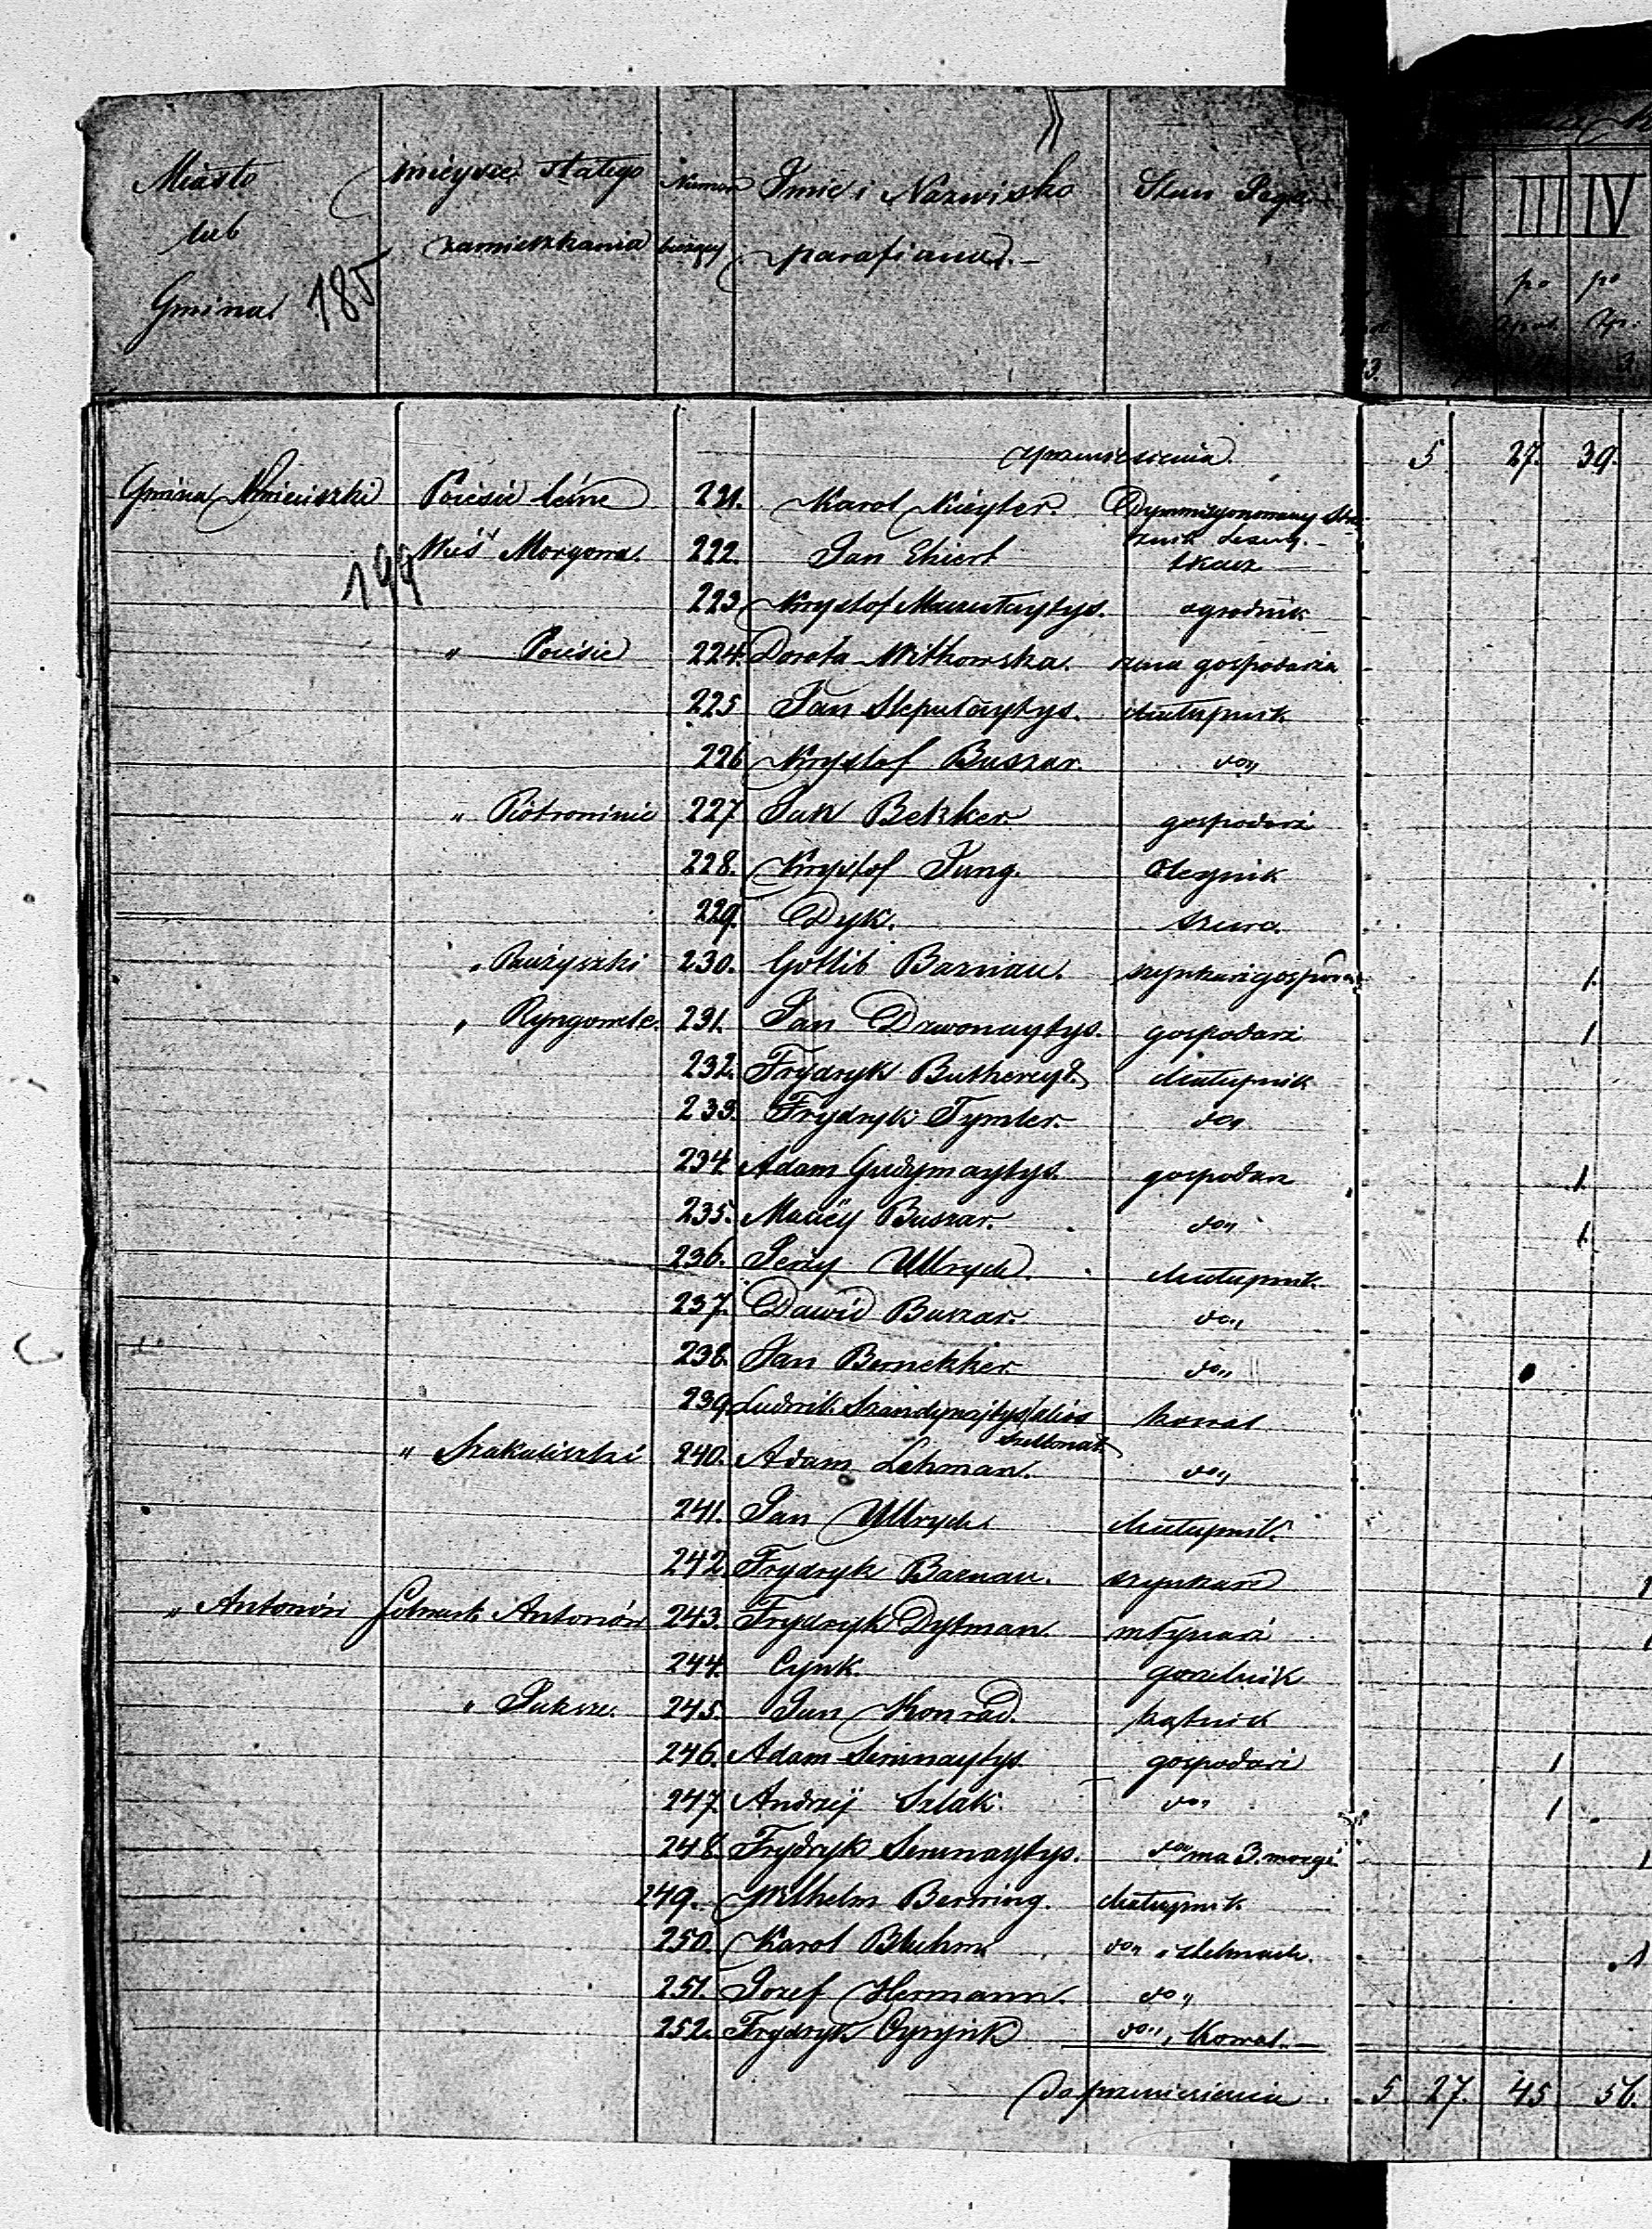 Miasto lub Gmina mieysce stałego zamieszkania Numer bieżący Imie i Nazwisko parafiana. Stan Jego III IV
185 po po
z przeniesienia. 5 27. 39.
Gmina Kwieciszki Poiésie leśne 221. Karol Kieyter. Dymmisyonowany
Wieś Morgowa. 222. Jan Ehiert tkacz
194 223. Krysztof ogrodnik
" Poiésie 224. Dorota Witkowska. żona gospodarza
225 Jan Steputaytys. chałupnik
226 Krysztof Buszar. do"
" Piotrowinie 227 Jan Bekker gospodarz
228. Krysztof Jung. Oleynik
229. Dyk. szewc.
" Ruzyszki 230. Gottlib Barnau. szynkarz gospodarz 1.
" Ryngowle. 231. Jan Dzwonaytys. gospodarz 1
232. Frydryk chałupnik
233. Frydryk Tymler. do"
234. Adam Gudymaytys. gospodarz 1.
235. Maciéy Buszar. do" 1.
236. Jerzy Ullrych. chałupnik.
237. Dawid Buszar. do"
238. Jan Bernekker. do"
239. Ludwik Szandynajtys alias kowal
" Szakaliszki 240. Adam Lehman. do"
241. Jan Ullrych. chałupnik
242. Frydryk Barnau. szynkarz
" Antonów Folwark Antonów 243. Frydryk Dytman. młynarz
244. Cynk. gorzelnik
" Puksze. 245. Jan Konrad. kątnik
246. Adam Simnaytys. gospodarz 1
247. Andrzéy Szlak. do" 1
248. Frydryk Simnaytys. do" ma 3. morgi.
249. Wilhelm Berwing. chałupnik
250. Karol Bluhm do" i stelmach. 1
251. Jozef Hermann. do"
252. Frydryk do", Kowal.
do przeniesienia 5 27. 45 56.